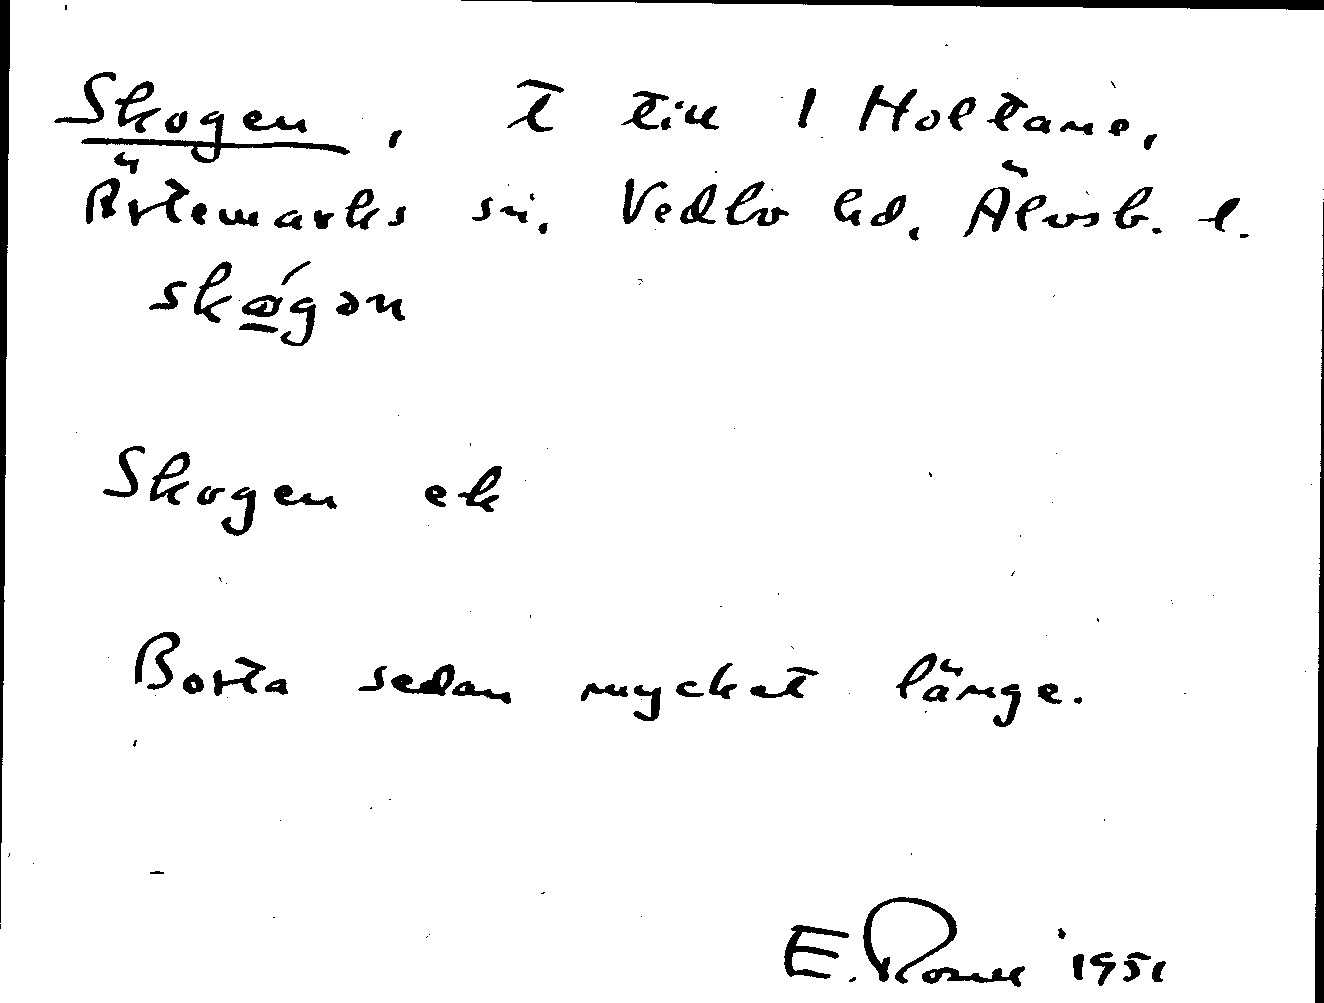 Skogen, t till 1 Holtane,
Ärtemarks sn, Vedbo hd, Älvsb. l.
skøgən
Skogen ek
Borta sedan mycket länge.
E. 1951